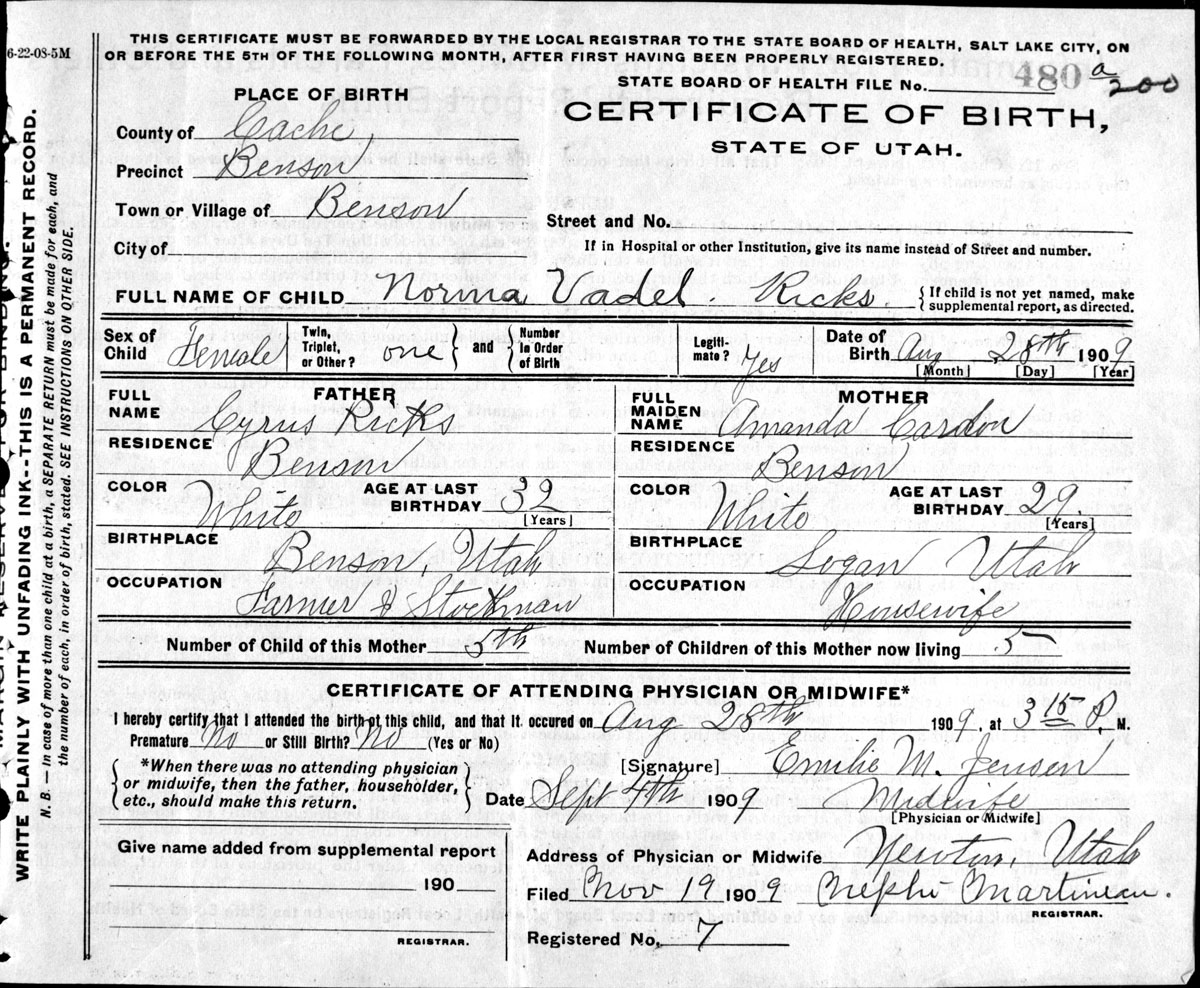 6-22-08-5M
THIS CERTIFICATE MUST BE FORWARDED BY THE LOCAL REGISTRAR TO THE STATE BOARD OF HEALTH, SALT LAKE CITY, ON
OR BEFORE THE 5TH OF THE FOLLOWING MONTH, AFTER FIRST HAVING BEEN PROPERLY REGISTERED.
STATE BOARD OF HEALTH FILE No. 480 a 200
PLACE OF BIRTH
CERTIFICATE OF BIRTH,
STATE OF UTAH.
County of Cache,
Precinct Benson
Town or Village of Benson
Street and No.
City of
If in Hospital or other Institution, give its name instead of Street and number.
FULL NAME OF CHILD Norma Vadel. Ricks. {If child is not yet named, make supplemental report, as directed.
Sex of Child Female Twin, Triplet, or Other? one } and { Number in Order of Birth Legiti- mate? Yes Date of Birth Aug 28th 1909
[Month] [Day] [Year]
FATHER
FULL NAME Cyrus Ricks
RESIDENCE Benson
COLOR White AGE AT LAST BIRTHDAY 32
[Years]
BIRTHPLACE Benson, Utah
OCCUPATION Farmer & Stockman
MOTHER
FULL MAIDEN NAME Amanda Cardon
RESIDENCE Benson
COLOR White AGE AT LAST BIRTHDAY 29.
[Years]
BIRTHPLACE Logan Utah
OCCUPATION Housewife
Number of Child of this Mother 5th Number of Children of this Mother now living 5
CERTIFICATE OF ATTENDING PHYSICIAN OR MIDWIFE*
I hereby certify that I attended the birth of this child, and that it occured on Aug 28th 1909, at 3 15 P. M.
Premature No or Still Birth? No (Yes or No)
*When there was no attending physician
or midwife, then the father, householder,
etc., should make this return.
[Signature] Emilie M. Jensen
Date Sept 4th 1909 Midwife
[Physician or Midwife]
Give name added from supplemental report
190
REGISTRAR.
Address of Physician or Midwife Newton, Utah
Filed Nov 19 1909 Nephi Martineau.
REGISTRAR.
Registered No. 7
WRITE PLAINLY WITH UNFADING INK--THIS IS A PERMANENT RECORD.
N. B. — In case of more than one child at a birth, a SEPARATE RETURN must be made for each, and
the number of each, in order of birth, stated. SEE INSTRUCTIONS ON OTHER SIDE.